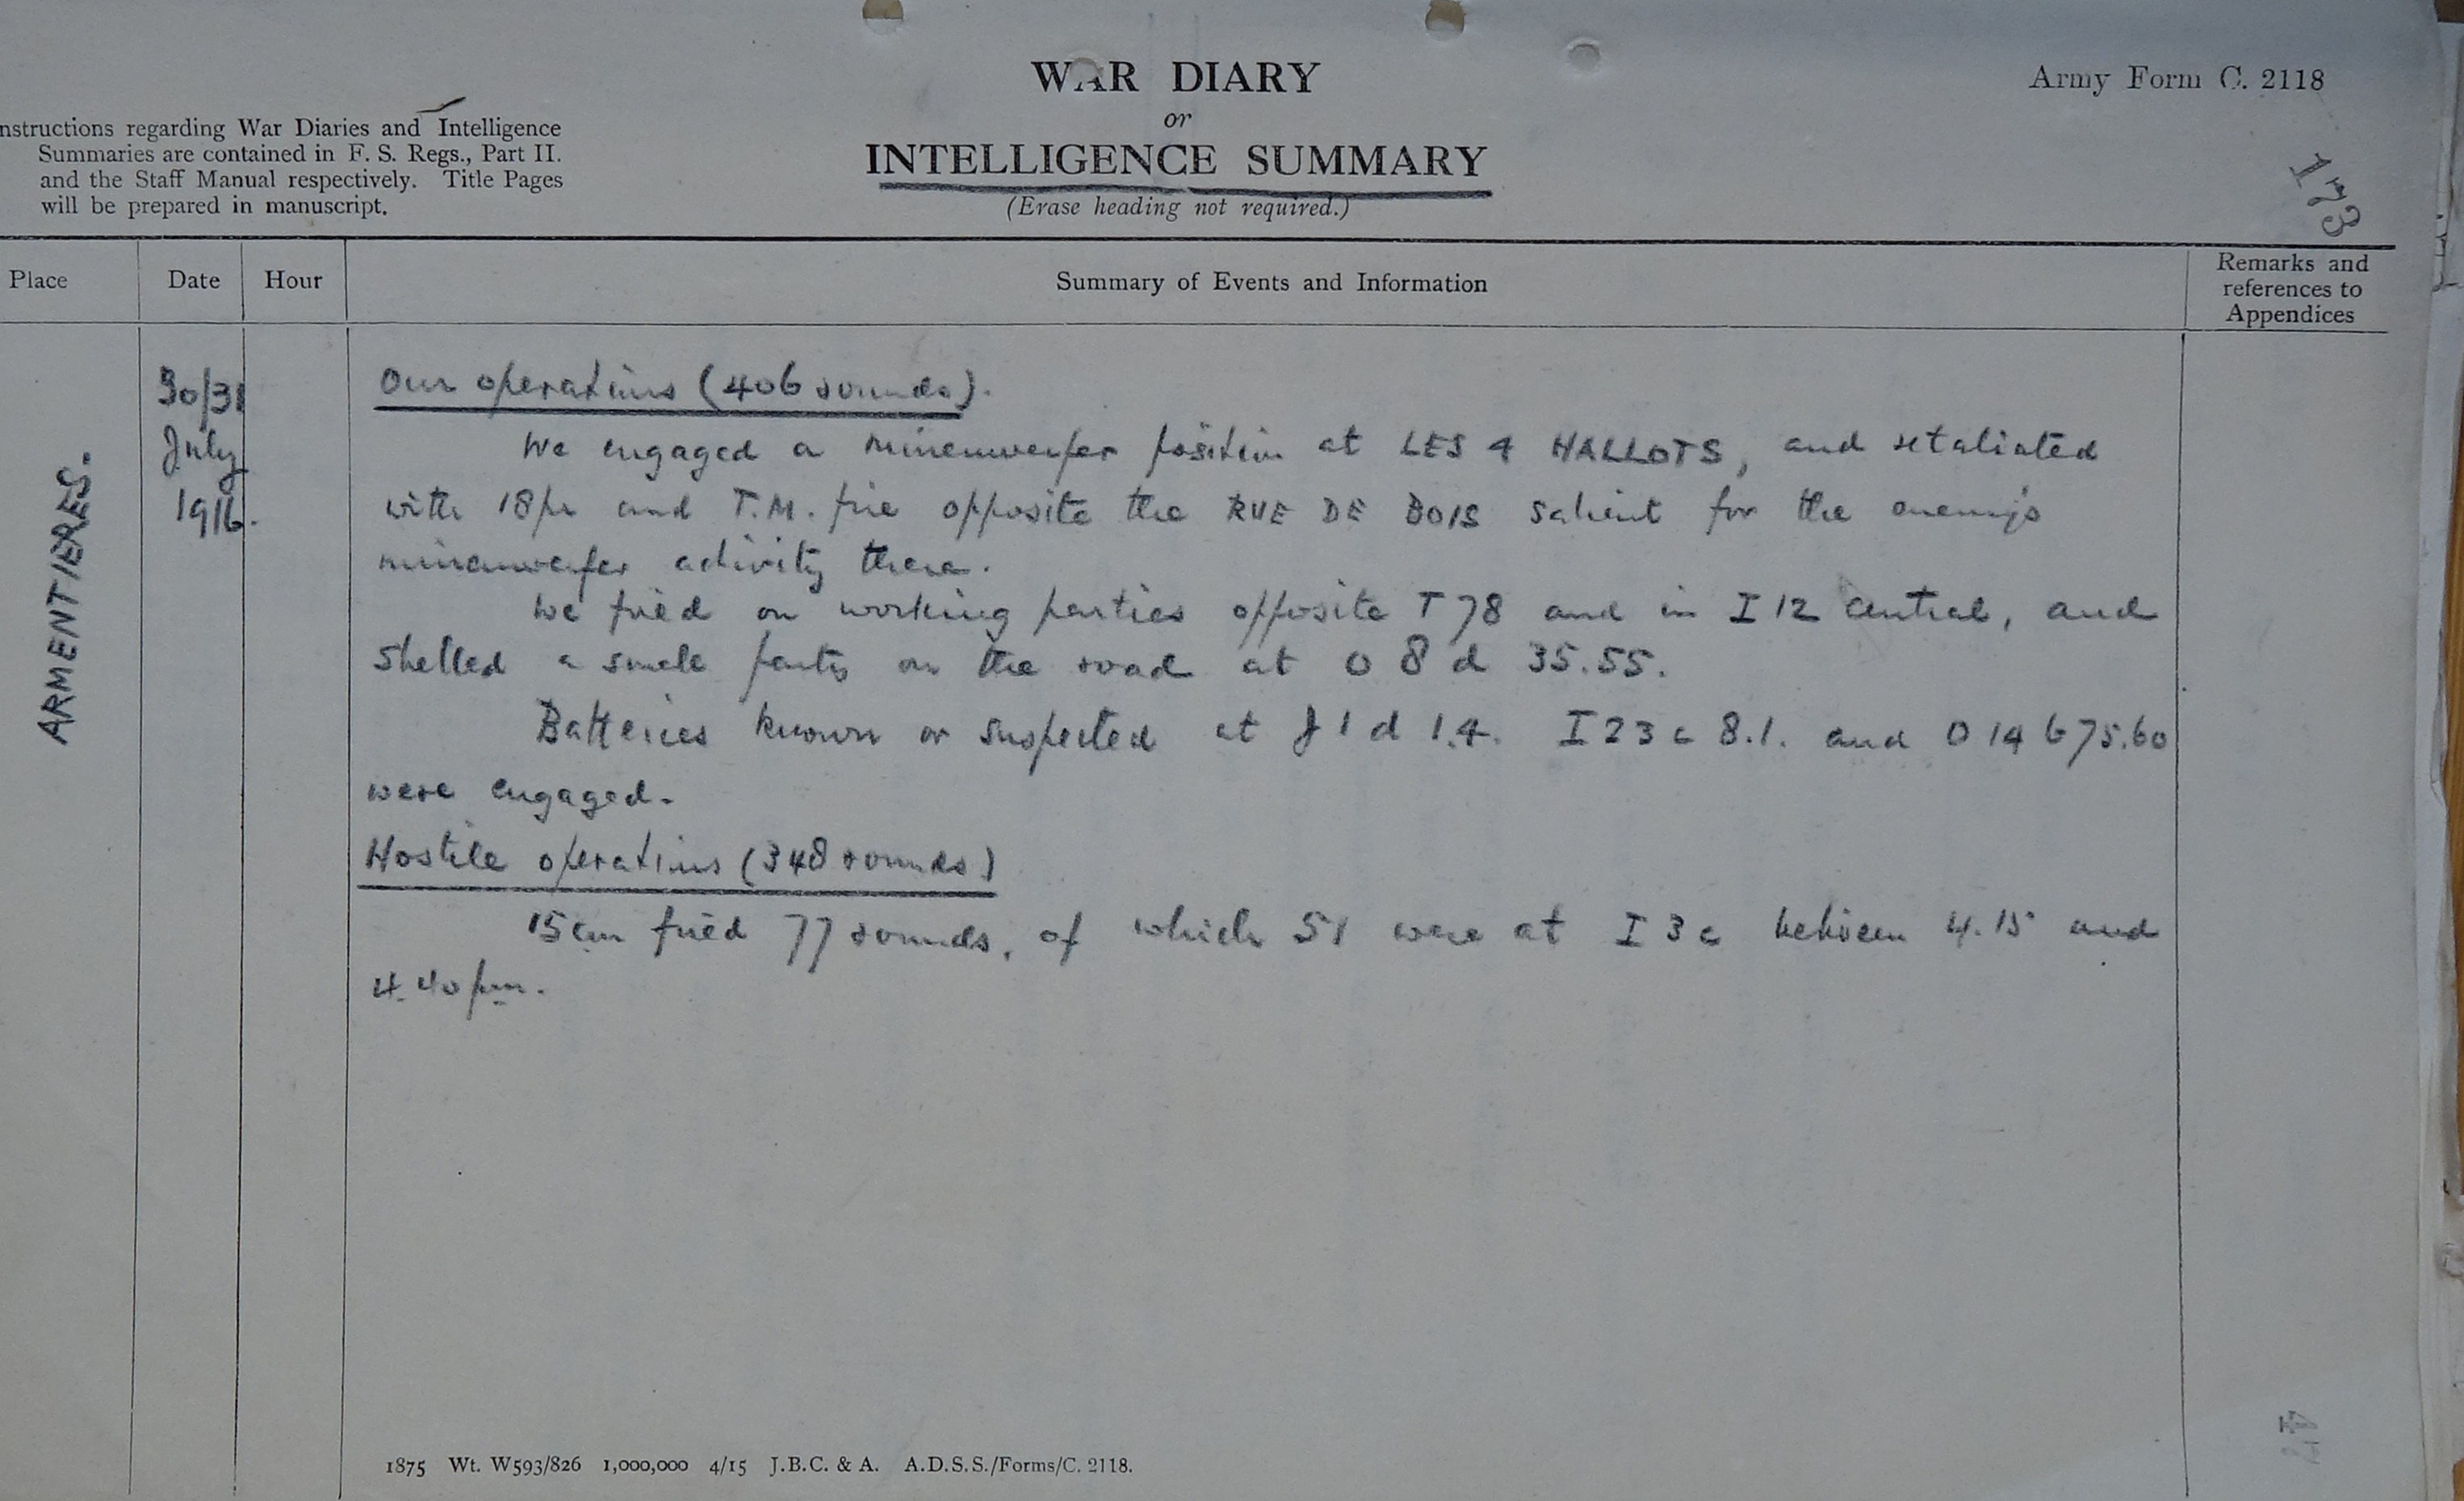 WAR DIARY
or
INTELLIGENCE SUMMARY
(Erase heading not required.)
Army Form C. 2118
173
nstructions regarding War Diaries and Intelligence
Summaries are contained in F. S. Regs., Part II.
and the Staff Manual respectively. Title Pages
will be prepared in manuscript.
Place
Date
Hour
Summary of Events and Information
Remarks and
references to
Appendices
ARMENTIERES.
30/31
July
1916.
Our operations (406 rounds).
We engaged a minenwerfer position at LES 4 HALLOTS, and retaliated
with 18pr and T.M. fire opposite the RUE DE BOIS salient for the enemy's
minenwerfer activity there.
We fired on working parties opposite T 78 and in I 12 central, and
shelled a small party on the road at O 8 d 35.55.
Batteries known or suspected at J 1 d 1.4. I 23 c 8.1. and O 14 b 75.60
were engaged.
Hostile operations (348 rounds)
15cm fired 77 rounds, of which 51 were at I 3 c between 4.15 and
4.40 pm.
1875 Wt. W593/826 1,000,000 4/15 J.B.C. & A. A.D.S.S./Forms/C. 2118.